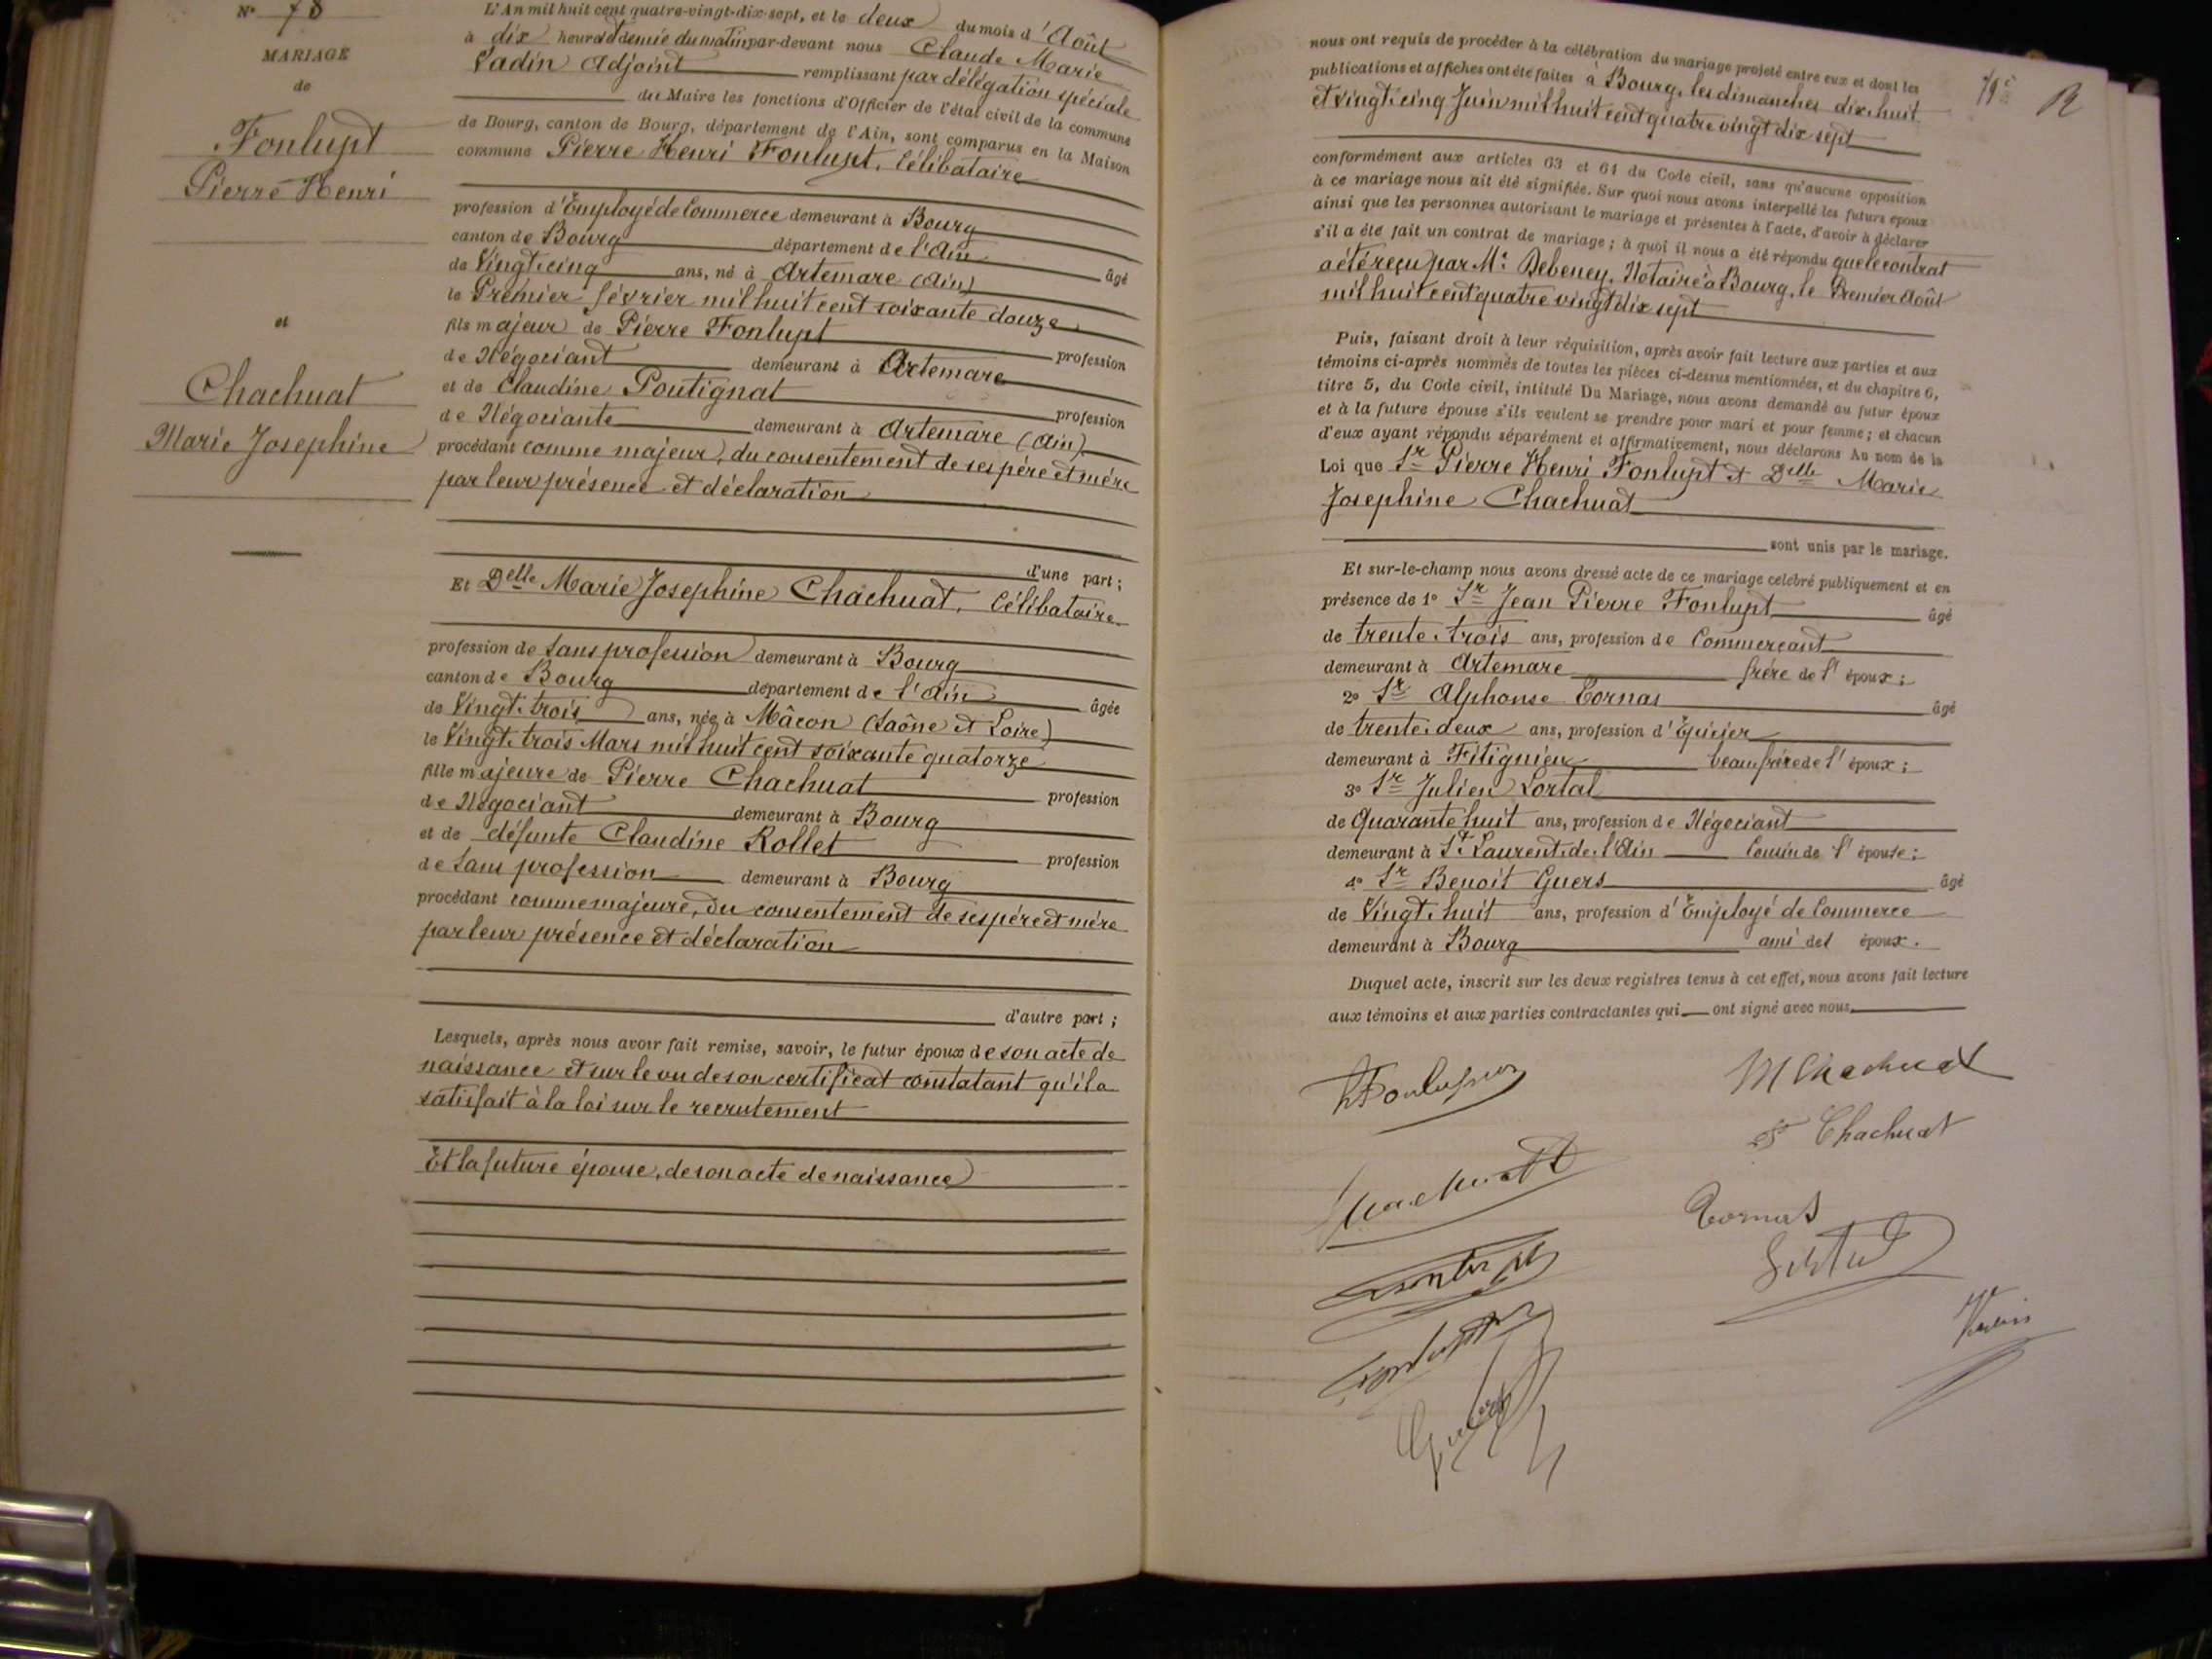 N° 78
MARIAGE
de
Fonlupt
Pierre Henri
et
Chachuat
Marie Josephine
L'An mil huit cent quatre-vingt-dix-sept, et le deux du mois d'Août
à dix heures et demie du matin par-devant nous Claude Marie
Vadin Adjoint remplissant par délégation spéciale
du Maire les fonctions d'Officier de l'état civil de la commune
de Bourg, canton de Bourg, département de l'Ain, sont comparus en la Maison
commune Pierre Henri Fonlupt, Célibataire
profession d'Employé de Commerce demeurant à Bourg
canton de Bourg département de l'Ain âgé
de Vingt cinq ans, né à Artemare (Ain)
le Premier février mil huit cent soixante douze
fils majeur de Pierre Fonlupt profession
de Négociant demeurant à Artemare
et de Claudine Poutignat profession
de Négociante demeurant à Artemare (Ain)
procédant comme majeur, du consentement de ses père et mère
par leur présence et déclaration
d'une part;
Et Delle Marie Josephine Chachuat, Célibataire
profession de Sans profession demeurant à Bourg
canton de Bourg département de l'Ain âgée
de Vingt trois ans, née à Mâcon (Saône et Loire)
le Vingt trois Mars mil huit cent soixante quatorze
fille majeure de Pierre Chachuat profession
de Négociant demeurant à Bourg
et de défunte Claudine Rollet profession
de Sans profession demeurant à Bourg
procédant comme majeure, du consentement de ses père et mère
par leur présence et déclaration
d'autre part;
Lesquels, après nous avoir fait remise, savoir, le futur époux de son acte de
naissance et sur le vu de son certificat constatant qu'il a
satisfait à la loi sur le recrutement
Et la future épouse, de son acte de naissance
79e R
nous ont requis de procéder à la célébration du mariage projeté entre eux et dont les
publications et affiches ont été faites à Bourg, les dimanches dix huit
et vingt cinq Juin mil huit cent quatre vingt dix sept
conformément aux articles 63 et 64 du Code civil, sans qu'aucune opposition
à ce mariage nous ait été signifiée. Sur quoi nous avons interpellé les futurs époux
ainsi que les personnes autorisant le mariage et présentes à l'acte, d'avoir à déclarer
s'il a été fait un contrat de mariage; à quoi il nous a été répondu que le contrat
a été reçu par Me Debeney, Notaire à Bourg, le Premier Août
mil huit cent quatre vingt dix sept
Puis, faisant droit à leur réquisition, après avoir fait lecture aux parties et aux
témoins ci-après nommés de toutes les pièces ci-dessus mentionnées, et du chapitre 6,
titre 5, du Code civil, intitulé Du Mariage, nous avons demandé au futur époux
et à la future épouse s'ils veulent se prendre pour mari et pour femme; et chacun
d'eux ayant répondu séparément et affirmativement, nous déclarons Au nom de la
Loi que Sr Pierre Henri Fonlupt et Delle Marie
Josephine Chachuat
sont unis par le mariage.
Et sur-le-champ nous avons dressé acte de ce mariage célébré publiquement et en
présence de 1° Sr Jean Pierre Fonlupt âgé
de trente trois ans, profession de Commerçant
demeurant à Artemare frère de l'époux;
2° Sr Alphonse Cornas âgé
de trente deux ans, profession d'Epicier
demeurant à Fitignieu beau frère de l'époux;
3° Sr Julien Lortal
de Quarante huit ans, profession de Négociant
demeurant à St Laurent de l'Ain Cousin de l'épouse;
4° Sr Benoit Guers âgé
de Vingt huit ans, profession d'Employé de Commerce
demeurant à Bourg ami de l'époux.
Duquel acte, inscrit sur les deux registres tenus à cet effet, nous avons fait lecture
aux témoins et aux parties contractantes qui ont signé avec nous.
M Chachuat
Chachuat
Chachuat
Cornas